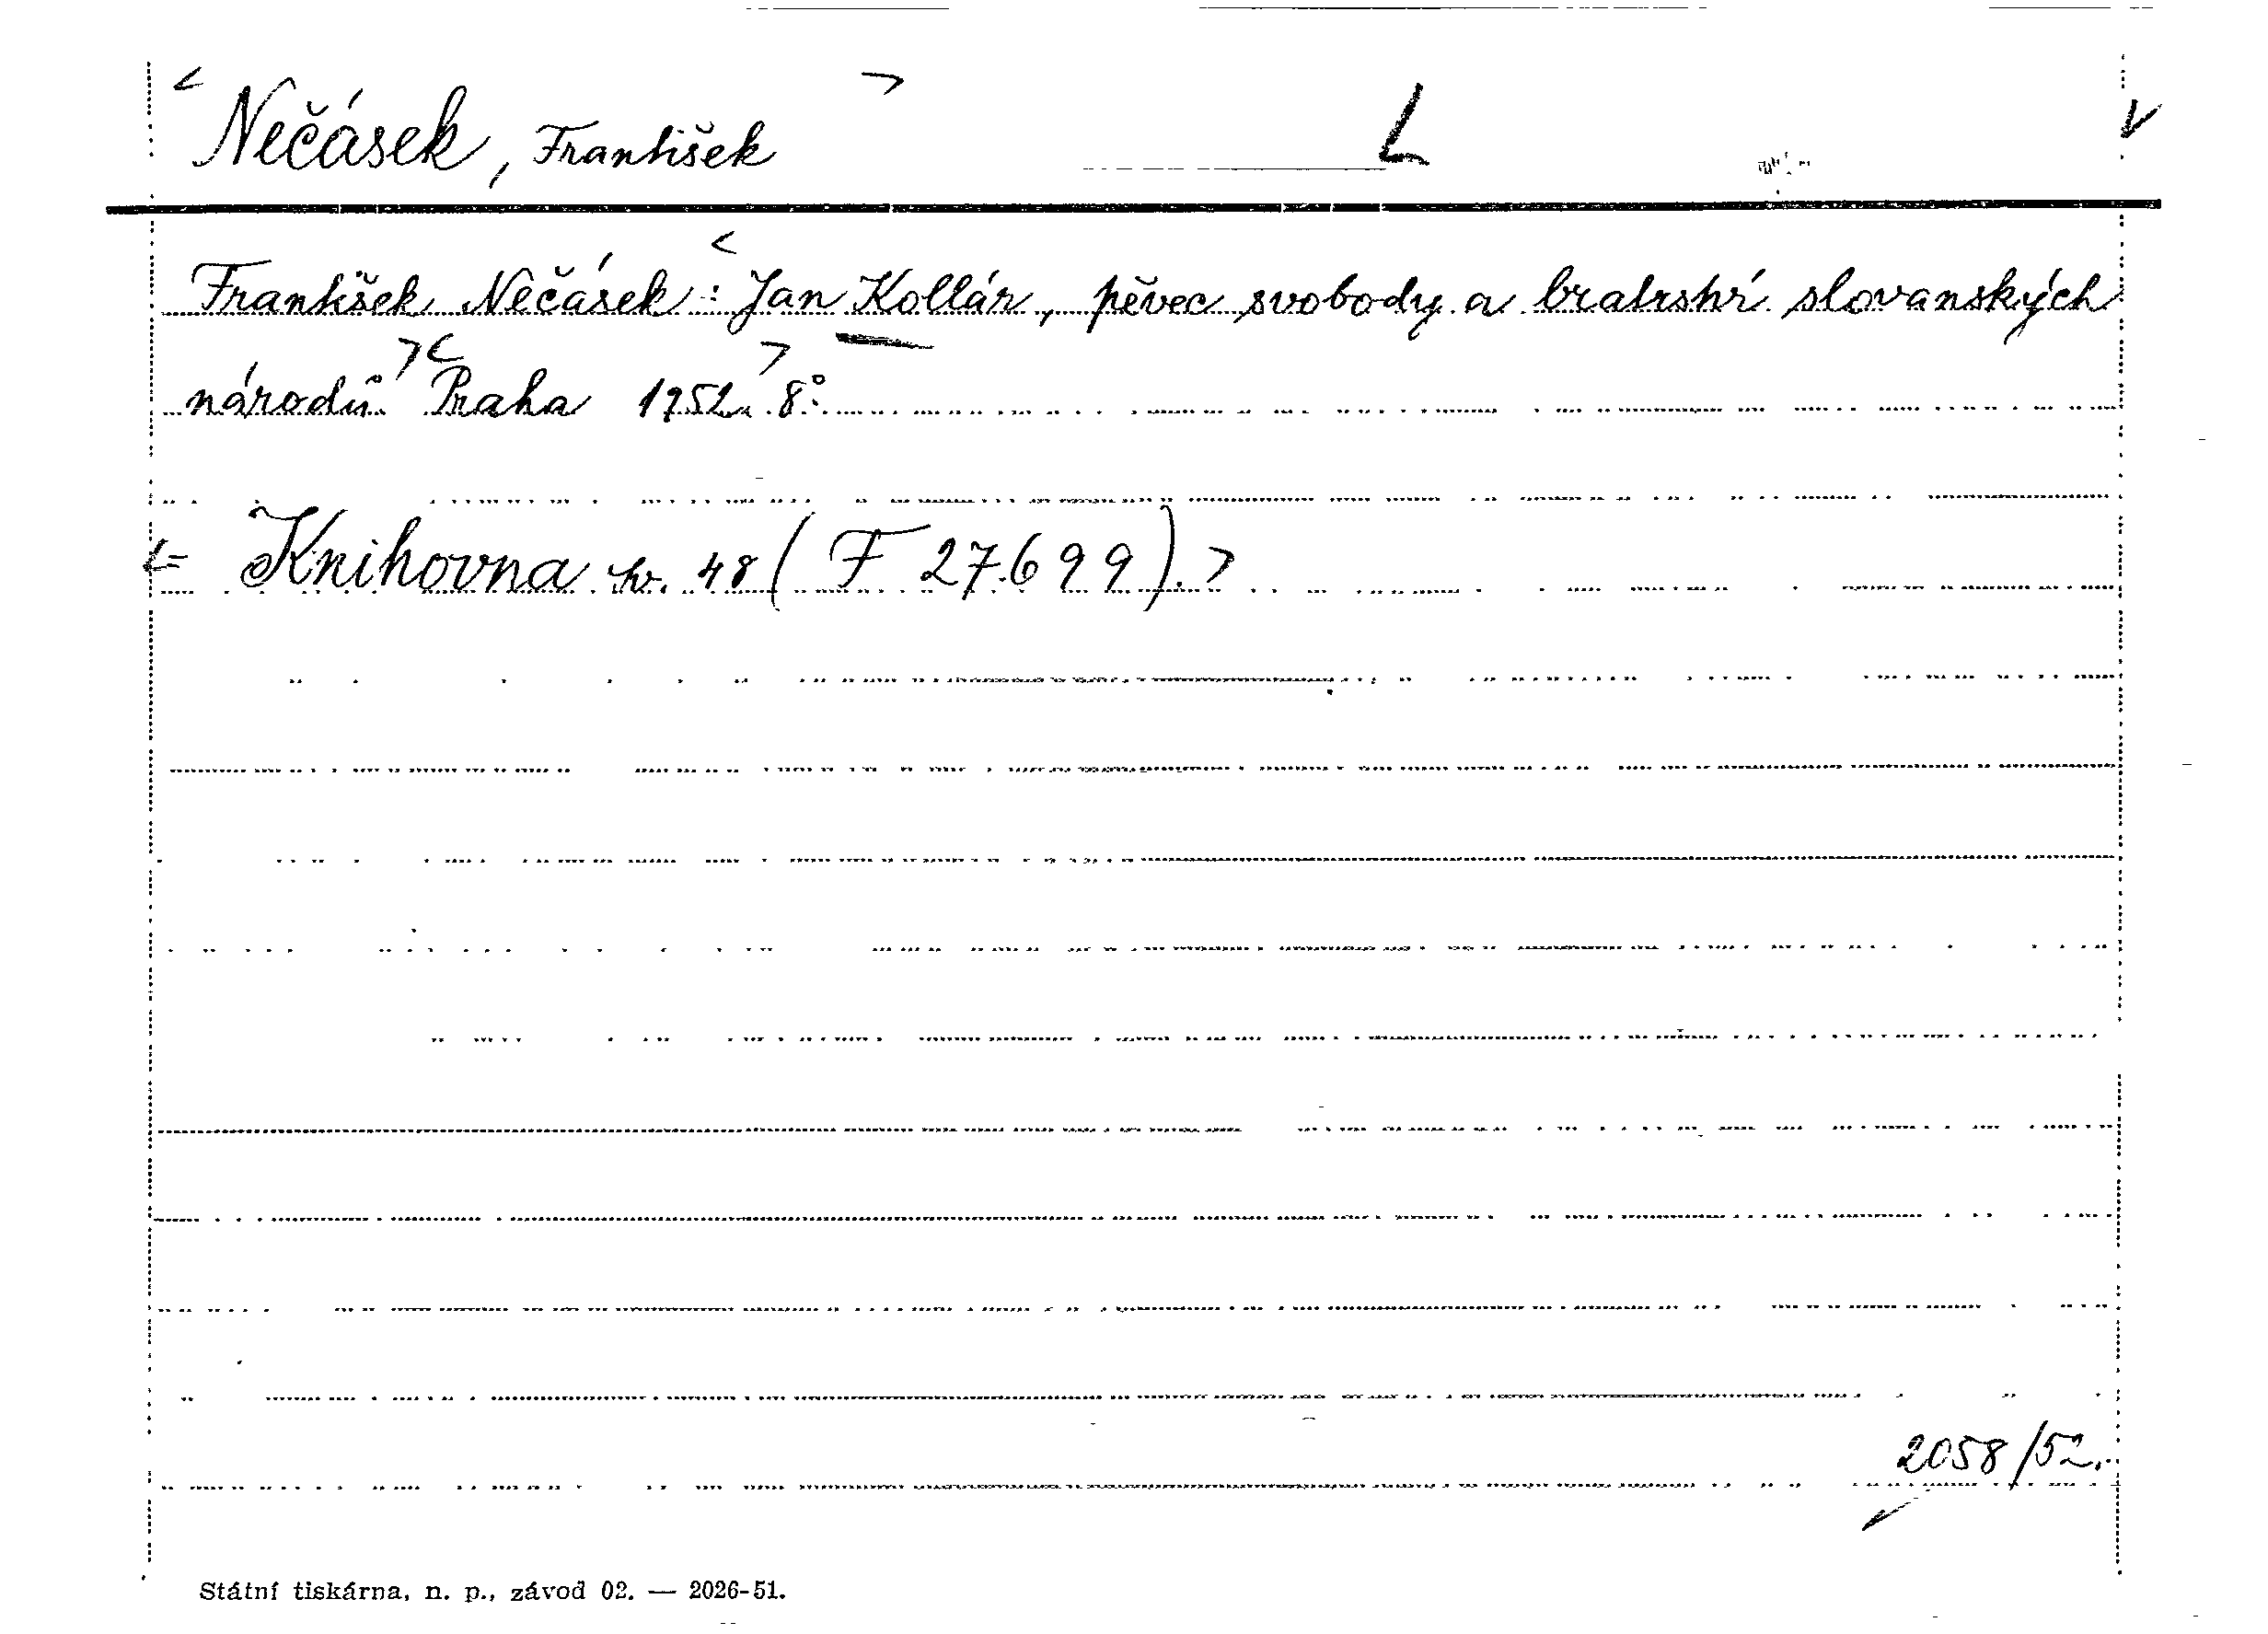 < Nečásek, František > L V
František Nečásek: < Jan Kollár, pěvec svobody a bratrství slovanských
národů. >< Praha 1952. > 8°.
<= Knihovna sv. 48 ( F 27.699). >
2058/52.
Státní tiskárna, n. p., závod 02. — 2026-51.